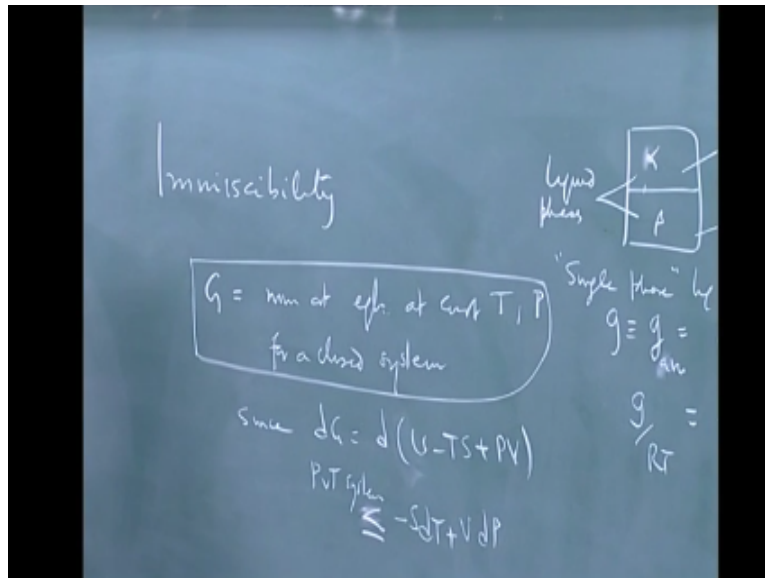 Immiscibility
G = min at eqb. at const T, P
for a closed system
since dG = d(U-TS+PV)
PVT system
≤ -SdT+VdP
liquid
phases
α
β
"Single phase" liq
g ≡ g =
g/RT =